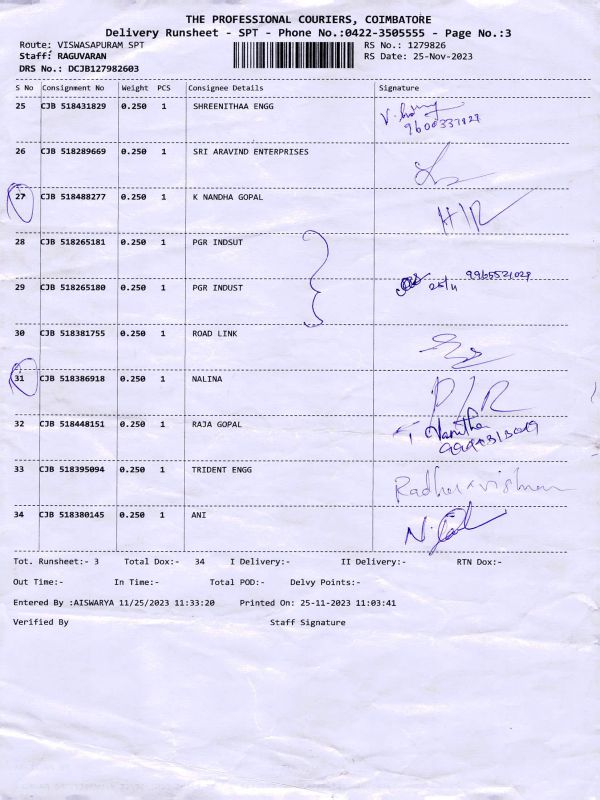 THE PROFESSIONAL COURIERS, COIMBATORE
Delivery Runsheet - SPT - Phone No.:0422-3505555 - Page No.:3
Route: VISWASAPURAM SPT RS No.: 1279826
Staff: RAGUVARAN RS Date: 25-Nov-2023
DRS No.: DCJB127982603
S No Consignment No Weight PCS Consignee Details Signature
25 CJB 518431829 0.250 1 SHREENITHAA ENGG
26 CJB 518289669 0.250 1 SRI ARAVIND ENTERPRISES
27 CJB 518488277 0.250 1 K NANDHA GOPAL H/R
28 CJB 518265181 0.250 1 PGR INDSUT
29 CJB 518265180 0.250 1 PGR INDUST 25/11
30 CJB 518381755 0.250 1 ROAD LINK
31 CJB 518386918 0.250 1 NALINA P/R
32 CJB 518448151 0.250 1 RAJA GOPAL Vanitha
33 CJB 518395094 0.250 1 TRIDENT ENGG Radhakrishnan
34 CJB 518380145 0.250 1 ANI
Tot. Runsheet:- 3 Total Dox:- 34 I Delivery:- II Delivery:- RTN Dox:-
Out Time:- In Time:- Total POD:- Delvy Points:-
Entered By :AISWARYA 11/25/2023 11:33:20 Printed On: 25-11-2023 11:03:41
Verified By Staff Signature